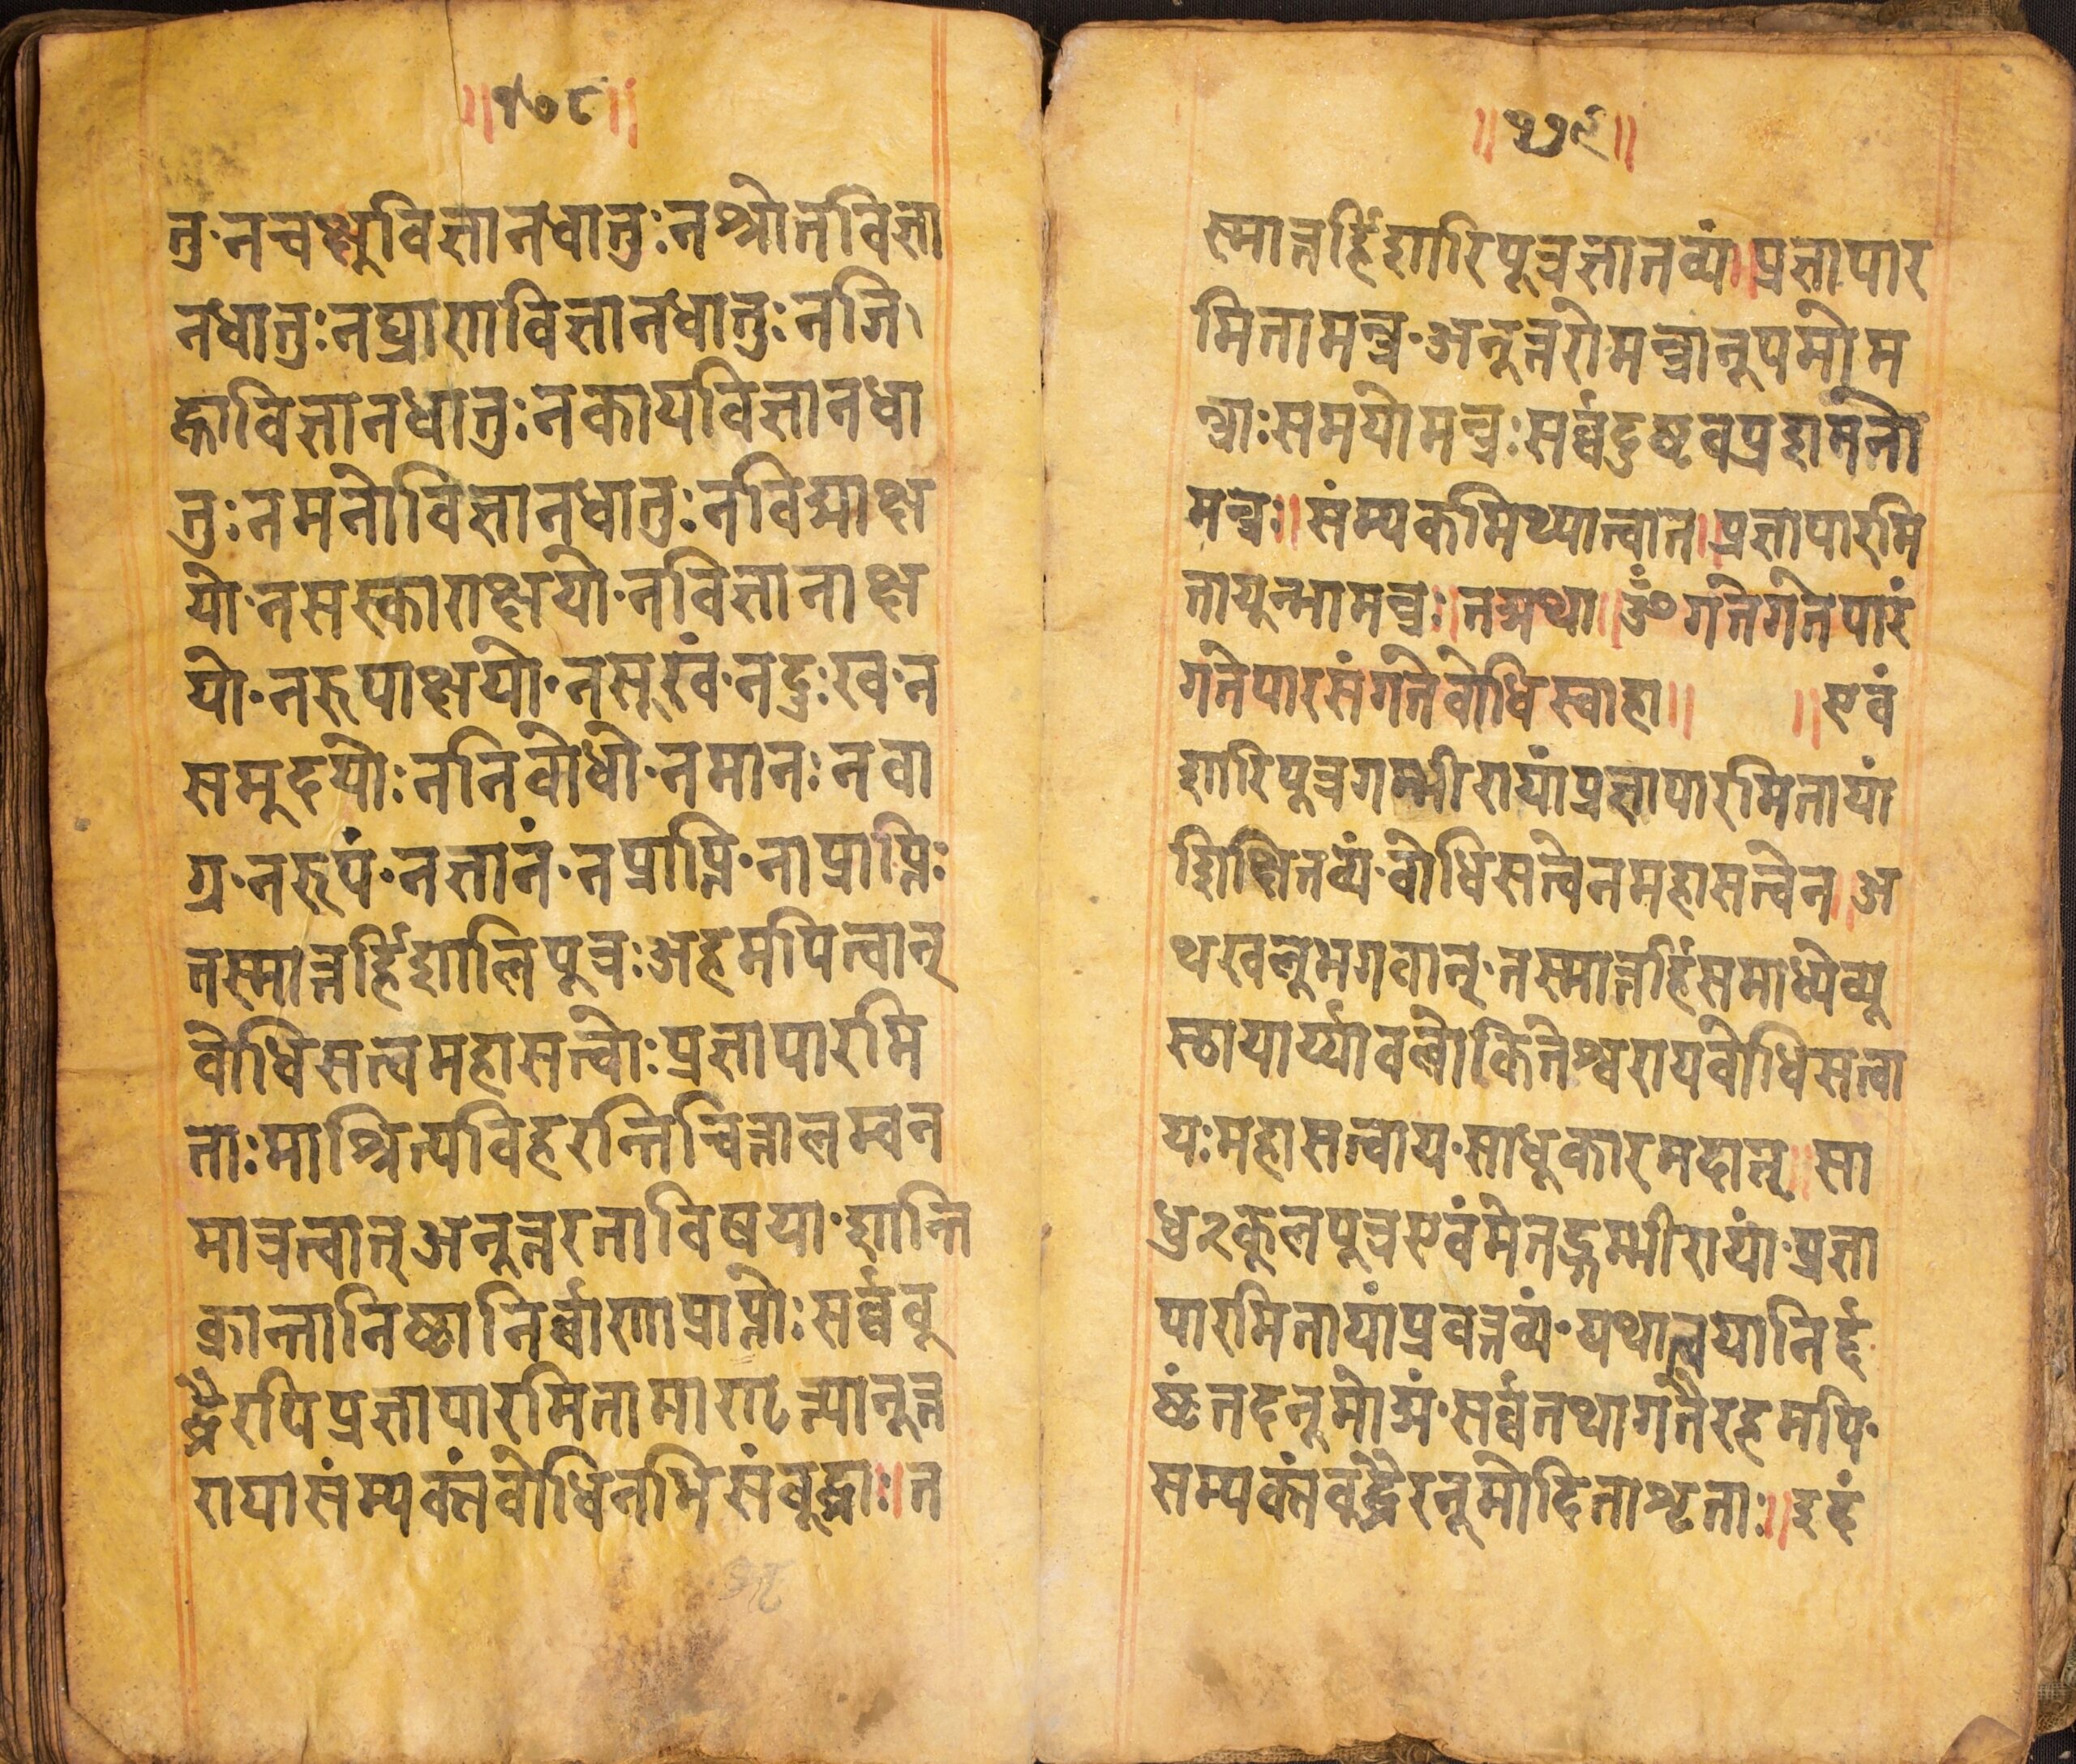 ॥१७८॥
तु·नचक्षुविज्ञानधातुःनश्रोतविज्ञा
नधातुःनघ्राणविज्ञानधातुःनजि
ह्वाविज्ञानधातुःनकायविज्ञानधा
तुःनमनोविज्ञानधातुःनविद्याक्ष
यो·नसस्काराक्षयो·नविज्ञानाक्ष
यो·नरुपाक्षयो·नसूखं·नदुःख·न
समुदयोःननिबोधो·नमानःनवा
ग्र·नरूपं·नज्ञानं·नप्राप्ति·नाप्राप्तिः
तस्मात्तर्हिशालिपुत्रःअहमपित्वात्
बोधिसत्वमहासत्वोःप्रज्ञापारमि
ताःमाश्रित्यविहरन्तिचित्तालम्बन
मात्रत्वात्अनुत्तरताविषया·शान्ति
क्रान्तानिष्ठानिर्व्वाणप्राप्तोःसर्व्वबु
द्धैरपिप्रज्ञापारमितामाराृत्यानुत्त
रायासंम्यक्तंबोधिनभिसंबूद्धाः॥त
॥१७९॥
स्मात्तर्हिशारिपूत्रज्ञातव्यं॥प्रज्ञापार
मितामन्त्र·अनूत्तरोमन्त्रानूपमोम
न्त्राःसमयोमन्त्रःसर्व्वदुष्टवप्रशमनो
मन्त्रः॥संम्यकमिथ्यात्वात॥प्रज्ञापारमि
तायून्मामन्त्रः॥तद्यथा॥ॐगतेगतेपारं
गतेपारसंगतेबोधिस्वाहा॥ ॥एवं
शारिपुत्रगम्भीरायांप्रज्ञापारमितायां
शिक्षितव्यं·बोधिसत्वेनमहासत्वेन॥अ
थखलूभगवान्·तस्मात्तर्हिसमाध्येव्यू
स्ठायार्य्यावलोकितेश्वरायबोधिसत्वा
यःमहासत्वाय·साधूकारमदात्॥सा
धु२कूलपूत्रएवंमेतद्गम्भीरायां·प्रज्ञा
पारमितायांप्रवत्तव्यं·यथात्वयानिर्द्द
ष्ठंतदनूमोद्यं·सर्व्वतथागतैरहमपि·
सम्यक्तंबुद्धैरनूमोदिताशृताः॥इदं